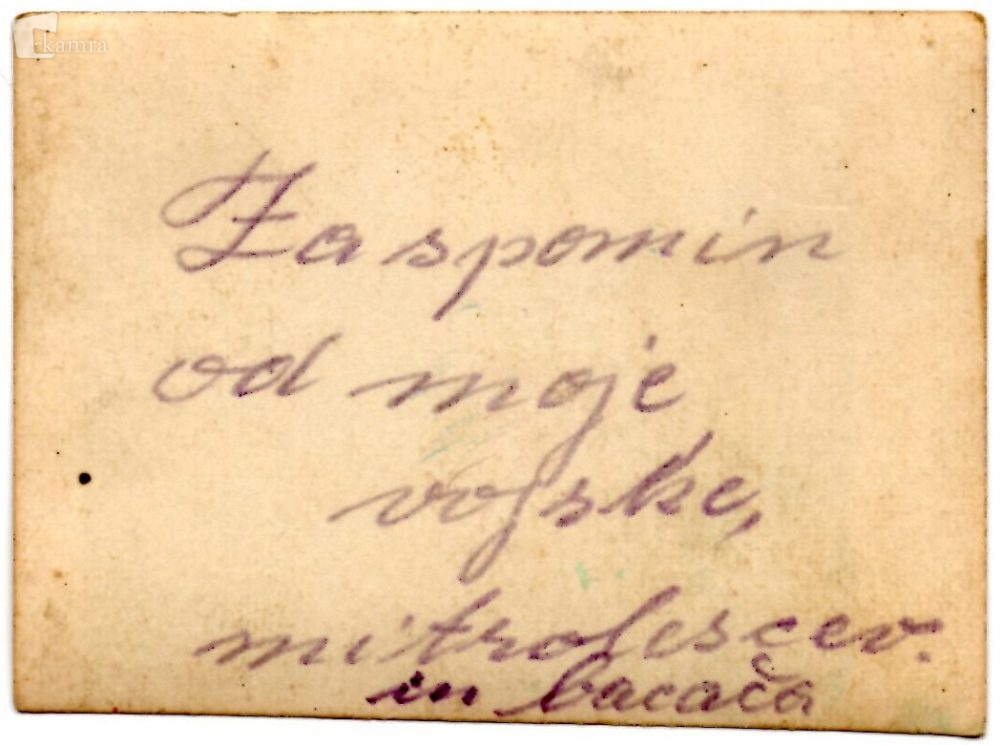 kamra
Za spomin
od moje
vojske,
mitrolescev.
in bacača